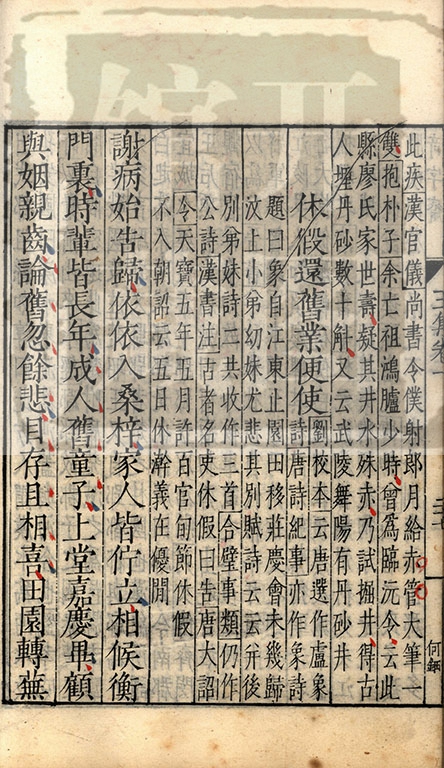 此疾漢官儀尚書令僕射郎月給赤管大筆一
雙抱朴子余亡祖鴻臚少時曾爲臨沅令云此
縣廖氏家世壽疑其井水殊赤乃試掘井得古
人埋丹砂數十斛又云武陵舞陽有丹砂井
休假還舊業便使
劉校本云唐選作盧象
詩唐詩紀事亦作象詩
題曰象自江東止園田移莊慶會未幾歸
汶上小弟幼妹尤悲其別賦詩云云并後
別弟妹詩二共收作三首合璧事類仍作
公詩漢書注古者名吏休假曰告唐大詔
令天寶五年五月許百官旬節休假
不入朝詔云五日休澣義在優閒
謝病始告歸依依入桑梓家人皆佇立相候衡
門裏時輩皆長年成人舊童子上堂嘉慶畢顧
與姻親齒論舊忽餘悲目存且相喜田園轉蕪